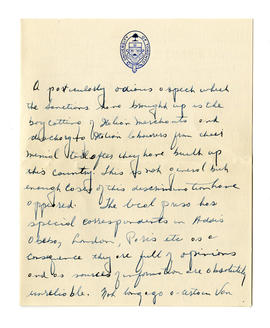 A particularly odious aspect which
the sanctions have brought up is the
boycotting of Italian merchants and
discharge of Italian labourers from their
menial tasks after they have built up
this country. This is not general but
enough cases of this discrimination have
appeared. The local press has
special correspondents in Addis
Ababa, London, Paris etc as a
consequence they are full of opinions
and as sources of information are absolutely
unreliable. Not long ago a certain Von